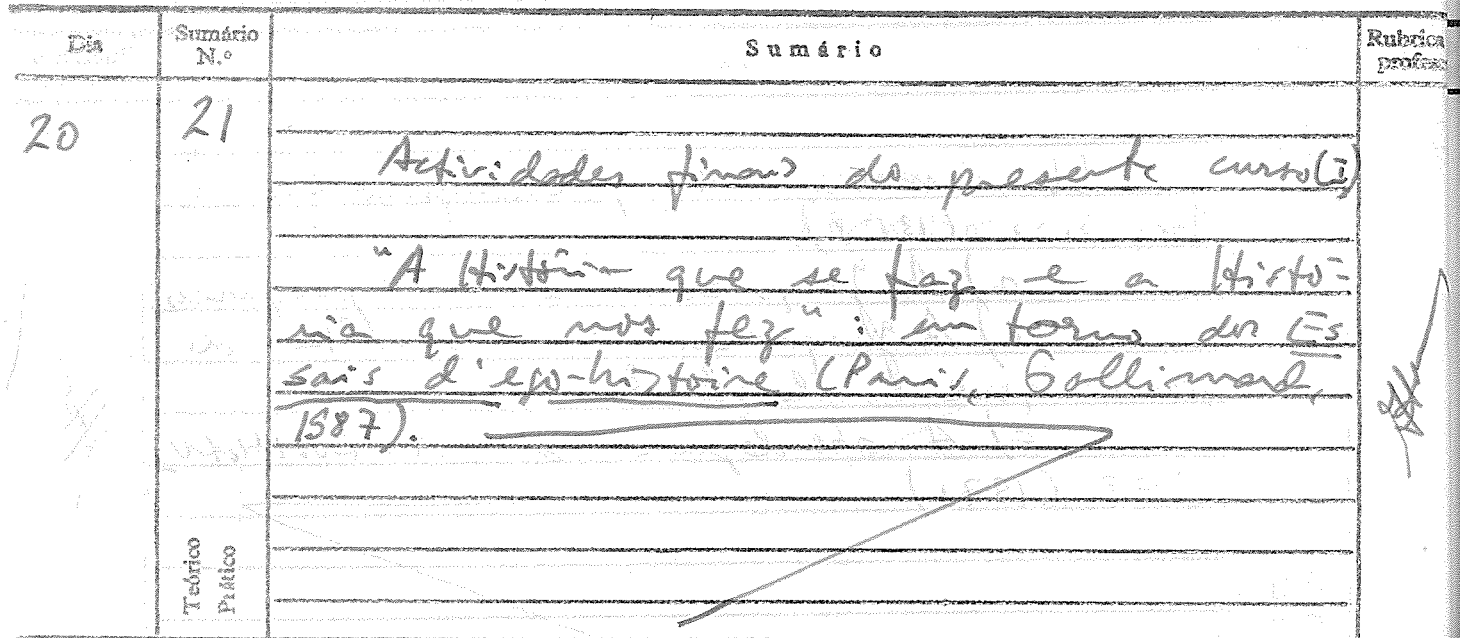 Dia
Sumário
N.º
Sumário
Rubrica
profess
20
21
Actividades finais do presente curso (I)
"A História que se faz e a Histó=
ria que nos fez": em torno dos Es
sais d'ego-histoire (Paris, Gallimard,
1987).
Teórico
Prático